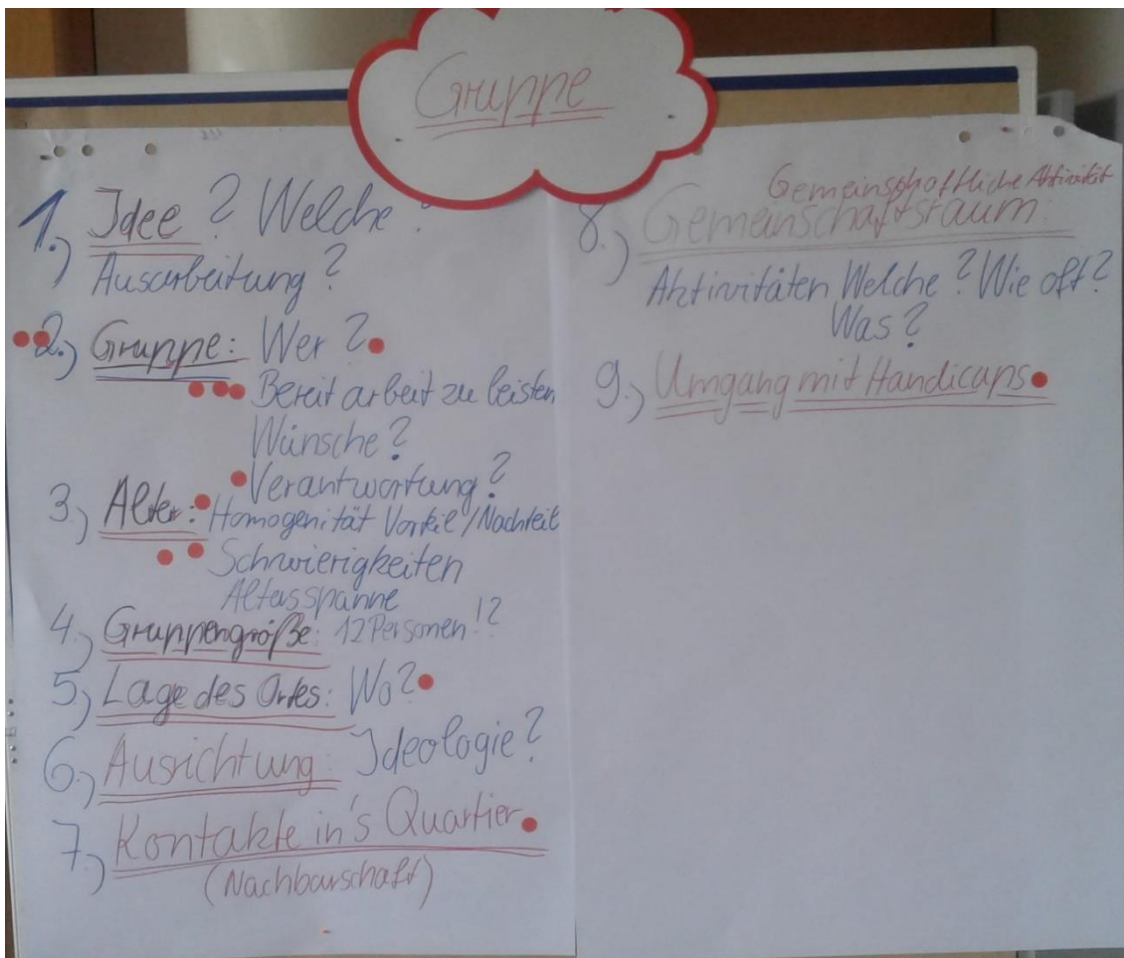 Gruppe
1.) Idee? Welche?
Ausarbeitung?
2.) Gruppe: Wer?
Bereit arbeit zu leisten
Wünsche?
Verantwortung?
3.) Alter: Homogenität Vorteil/Nachteil
Schwierigkeiten
Altersspanne
4.) Gruppengröße: 12 Personen!?
5.) Lage des Ortes: Wo?
6.) Ausrichtung: Ideologie?
7.) Kontakte in's Quartier
(Nachbarschaft)
Gemeinschaftliche Aktivität
8.) Gemeinschaftsraum:
Aktivitäten Welche? Wie oft?
Was?
9.) Umgang mit Handicaps